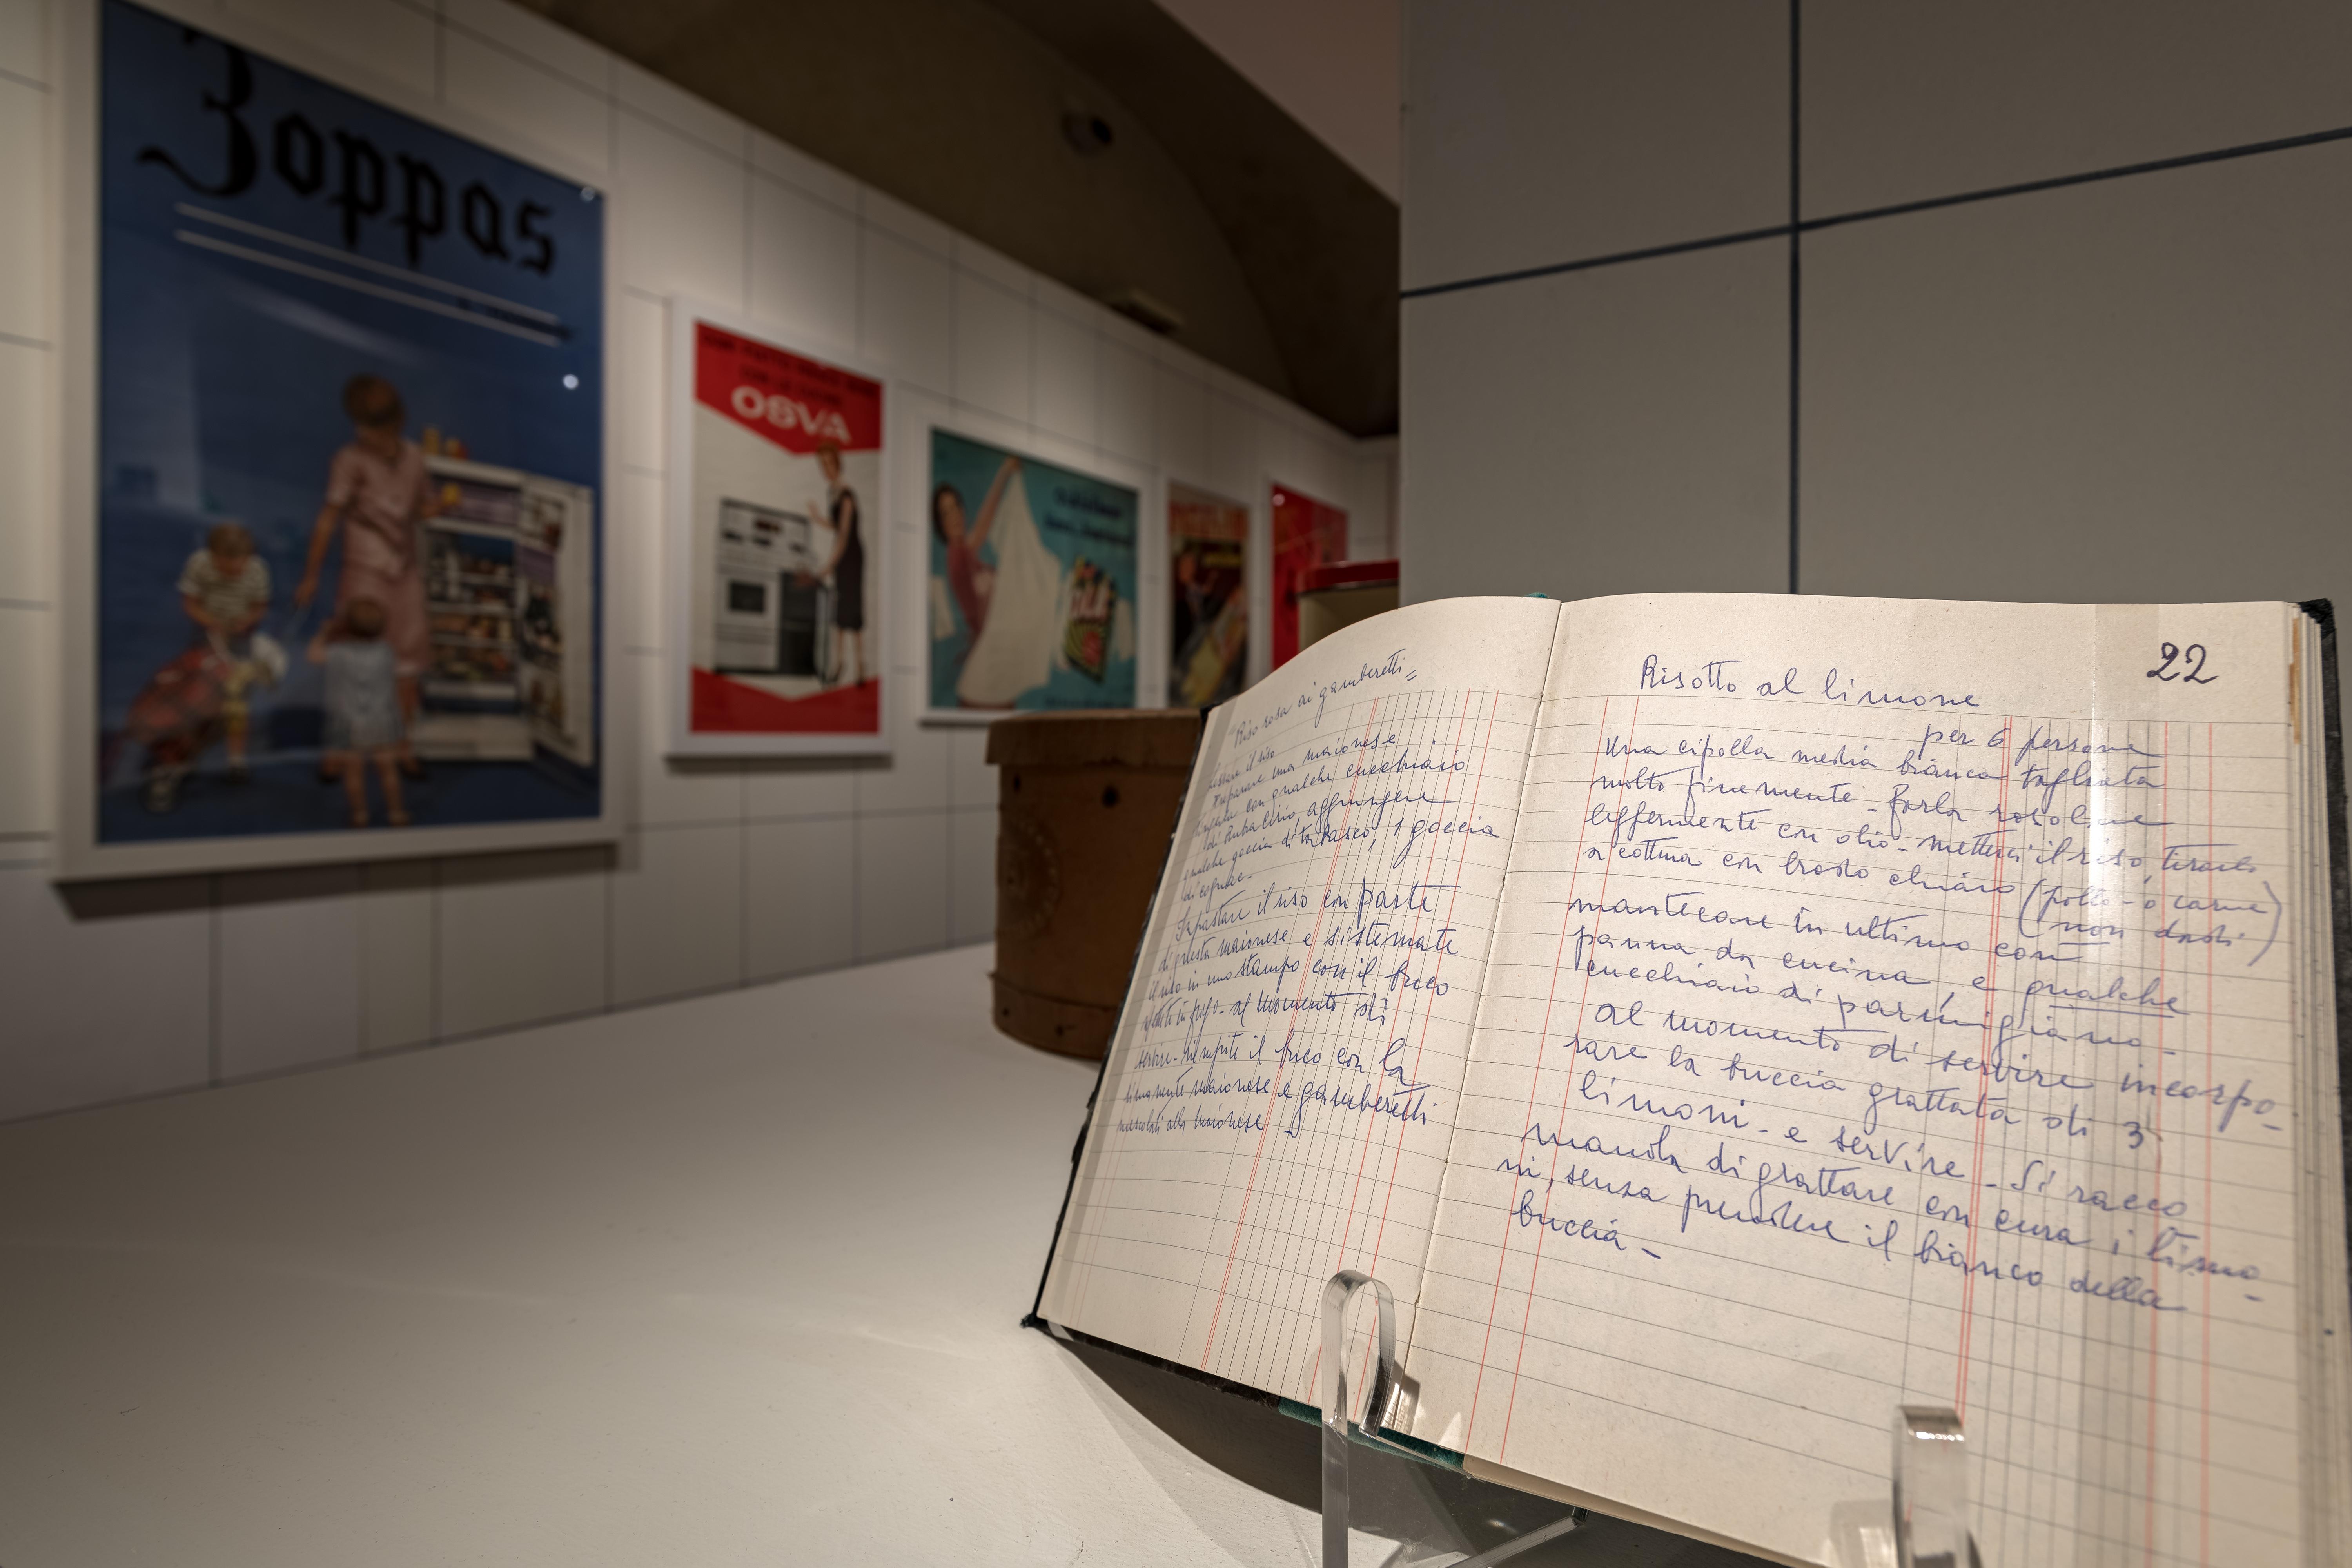 Zoppas
OSVA
"Riso rosa ai gamberetti"
lessare il riso
Preparare una maionese
con qualche cucchiaio
di Rubra Cirio, aggiungere
qualche goccia di tabasco, 1 goccia
di cognac -
Impastare il riso con parte
di questa maionese e sistemate
il riso in uno stampo con il buco
al momento di
servire - riempite il buco con la
rimanente maionese e gamberetti
mescolati alla maionese -
22
Risotto al limone
per 6 persone
Una cipolla media bianca tagliata
molto finemente - farla rosolare
leggermente con olio - metterci il riso, tirarlo
a cottura con brodo chiaro (pollo - o carne
non dadi)
mantecare in ultimo con
panna da cucina, e qualche
cucchiaio di parmigiano -
Al momento di servire incorpo-
rare la buccia grattata di 3
limoni - e servire - Si racco
manda di grattare con cura i limo-
ni, senza prendere il bianco della
buccia -